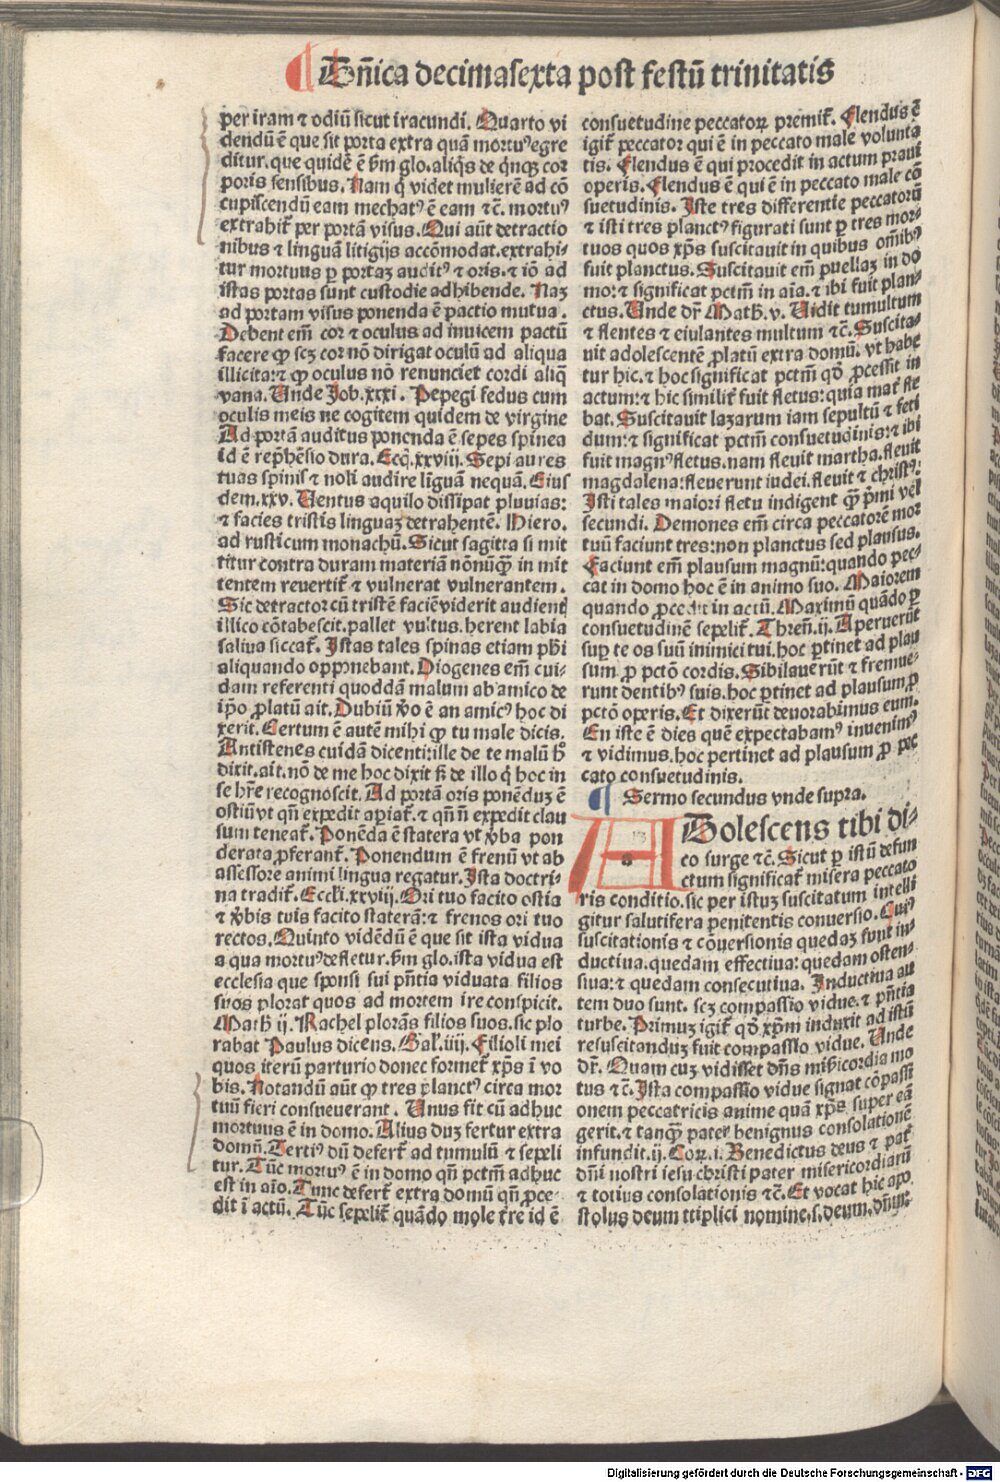 ¶ Dñica decimasexta post festũ trinitatis
per iram ⁊ odiũ sicut iracundi. Quarto vi
dendũ ẽ que sit porta extra quã mortuꝰ egre
ditur. que quidẽ ẽ ẜm glo. aliq̃s de q̃nqꝫ cor
poris sensibus. Nam q̃ videt mulierẽ ad cõ
cupiscendũ eam mechatꝰ ẽ eam ⁊ c̃. mortuꝰ
extrahit᷑ per portã visus. Qui aũt detractio
nibus ⁊ linguã litigijs accõmodat. extrahi-
tur mortuus ꝑ portaꝫ auditꝰ ⁊ oris. ⁊ iõ ad
istas portas sunt custodie adhibende. Naꝫ
ad portam visus ponenda ẽ pactio mutua.
Debent em̃ cor ⁊ oculus ad inuicem pactũ
facere ꝙ scꝫ cor nõ dirigat oculũ ad aliqua
illicita: ⁊ ꝙ oculus nõ renunciet cordi aliq̃
vana. Unde Job. xxxi. Pepegi fedus cum
oculis meis ne cogitem quidem de virgine
Ad portã auditus ponenda ẽ sepes spinea
id ẽ rep̃hẽsio dura. Ecc̃. xxviij. Sepi aures
tuas spinis ⁊ noli audire lĩguã nequã. Eius
dem. xxv. Uentus aquilo dissipat pluuias:
⁊ facies tristis linguaꝫ detrahentẽ. Hiero.
ad rusticum monachũ. Sicut sagitta si mit
titur contra duram materiã nõnũꝙ̃ in mit
tentem reuertit᷑ ⁊ vulnerat vulnerantem.
Sic detractor cũ tristẽ faciẽ viderit audient̃
illico cõtabescit. pallet vultus. herent labia
saliua siccat᷑. Istas tales spinas etiam ph̃i
aliquando opponebant. Diogenes em̃ cui-
dam referenti quoddã malum ab amico de
ip̃o ꝓlatũ ait. Dubiũ ꝟo ẽ an amicꝰ hoc di
xerit. Certum ẽ autẽ mihi ꝙ tu male dicis.
Antistenes cuidã dicenti: ille de te malũ h̃
dixit. ait. nõ de me hoc dixit ẜ de illo q̃ hoc in
se hr̃e recognoscit. Ad portã oris ponẽduꝫ ẽ
ostiũ vt qñ expedit aꝑiat᷑. ⁊ qñ ñ expedit clau
sum teneat᷑. Ponẽda ẽ statera vt ꝟba pon
derata ꝓferant᷑. Ponendum ẽ frenũ vt ab
assessore animi lingua regatur. Ista doctri-
na tradit᷑. Ecc̃li. xxviij. Ori tuo facito ostia
⁊ ꝟbis tuis facito staterã: ⁊ frenos ori tuo
rectos. Quinto vidẽdũ ẽ que sit ista vidua
a qua mortuꝰ defletur. ẜm glo. ista vidua est
ecclesia que sponsi sui pñtia viduata filios
suos plorat quos ad mortem ire conspicit.
Math̃ ij. Rachel plorãs filios suos. sic plo
rabat Paulus dicens. Gal̃. iiij. Filioli mei
quos iterũ parturio donec formet᷑ xp̃s ĩ vo
bis. Notandũ aũt ꝙ tres planctꝰ circa mor
tuũ fieri consueuerant. Unus fit cũ adhuc
mortuus ẽ in domo. Alius duꝫ fertur extra
domũ. Tertiꝰ dũ defert᷑ ad tumulũ ⁊ sepeli
tur. Tũc mortuꝰ ẽ in domo qñ pctm̃ adhuc
est in aĩo. Tunc defert᷑ extra domũ qñ ꝓce-
dit ĩ actũ. Tũc sepelit᷑ quãdo mole tr̃re id ẽ
consuetudine peccatoꝝ premit᷑. Flendus ẽ
igit᷑ peccator qui ẽ in peccato male volunta
tis. Flendus ẽ qui procedit in actum praui
operis. Flendus ẽ qui ẽ in peccato male cõ
suetudinis. Iste tres differentie peccatorũ
⁊ isti tres planctꝰ figurati sunt ꝑ tres mor-
tuos quos xp̃s suscitauit in quibus om̃ibꝰ
fuit planctus. Suscitauit em̃ puellaꝫ in do
mo: ⁊ significat pctm̃ in aĩa. ⁊ ibi fuit plan-
ctus. Unde dr̃ Math̃. v. Uidit tumultum
⁊ flentes ⁊ eiulantes multum ⁊ c̃. Suscita-
uit adolescentẽ ꝓlatũ extra domũ. vt habe
tur hic. ⁊ hoc significat pctm̃ qd̃ ꝓcessit in
actum: ⁊ hic similit᷑ fuit fletus: quia mat᷑ fle
bat. Suscitauit lazarum iam sepultũ ⁊ feti
dum: ⁊ significat pctm̃ consuetudinis: ⁊ ibi
fuit magnꝰ fletus. nam fleuit martha. fleuit
magdalena: fleuerunt iudei. fleuit ⁊ christꝰ.
Isti tales maiori fletu indigent ꝙ̃ p̃mi vel
secundi. Demones em̃ circa peccatorẽ mor
tuũ faciunt tres: non planctus sed plausus.
Faciunt em̃ plausum magnũ: quando pec-
cat in domo hoc ẽ in animo suo. Maiorem
quando ꝓcedit in actũ. Maximũ quãdo ꝑ
consuetudinẽ sepelit᷑. Thren̄. ij. Aperuerũt
suꝑ te os suũ inimici tui. hoc ꝑtinet ad plau
sum ꝓ pctõ cordis. Sibilauerũt ⁊ fremue-
runt dentibꝰ suis. hoc ꝑtinet ad plausum ꝓ
pctõ operis. Et dixerũt deuorabimus eum.
En iste ẽ dies quẽ expectabamꝰ inuenimꝰ
⁊ vidimus. hoc pertinet ad plausum ꝓ pec
cato consuetudinis.
¶ Sermo secundus vnde supra.
ADolescens tibi di-
co surge ⁊ c̃. Sicut ꝑ istũ defun
ctum significat᷑ misera peccato
ris conditio. sic per istuꝫ suscitatum intelli
gitur salutifera penitentis conuersio. Cuiꝰ
suscitationis ⁊ cõuersionis quedaꝫ sunt in-
ductiua. quedam effectiua: quedam osten-
siua: ⁊ quedam consecutiua. Inductiua au
tem duo sunt. scꝫ compassio vidue. ⁊ pñtia
turbe. Primuꝫ igit᷑ qd̃ xp̃m induxit ad istũ
resuscitanduꝫ fuit compassio vidue. Unde
dr̃. Quam cuꝫ vidisset dñs mĩsericordia mo
tus ⁊ c̃. Ista compassio vidue signat cõpassi
onem peccatricis anime quã xp̃s super eã
gerit. ⁊ tanꝙ̃ pater benignus consolationẽ
infundit. ij. Coꝝ. i. Benedictus deus ⁊ pat᷑
dñi nostri iesu christi pater misericordiarũ
⁊ totius consolationis ⁊ c̃. Et vocat hic apo
stolus deum triplici nomine. s. deum. dñum.
Digitalisierung gefördert durch die Deutsche Forschungsgemeinschaft - DFG